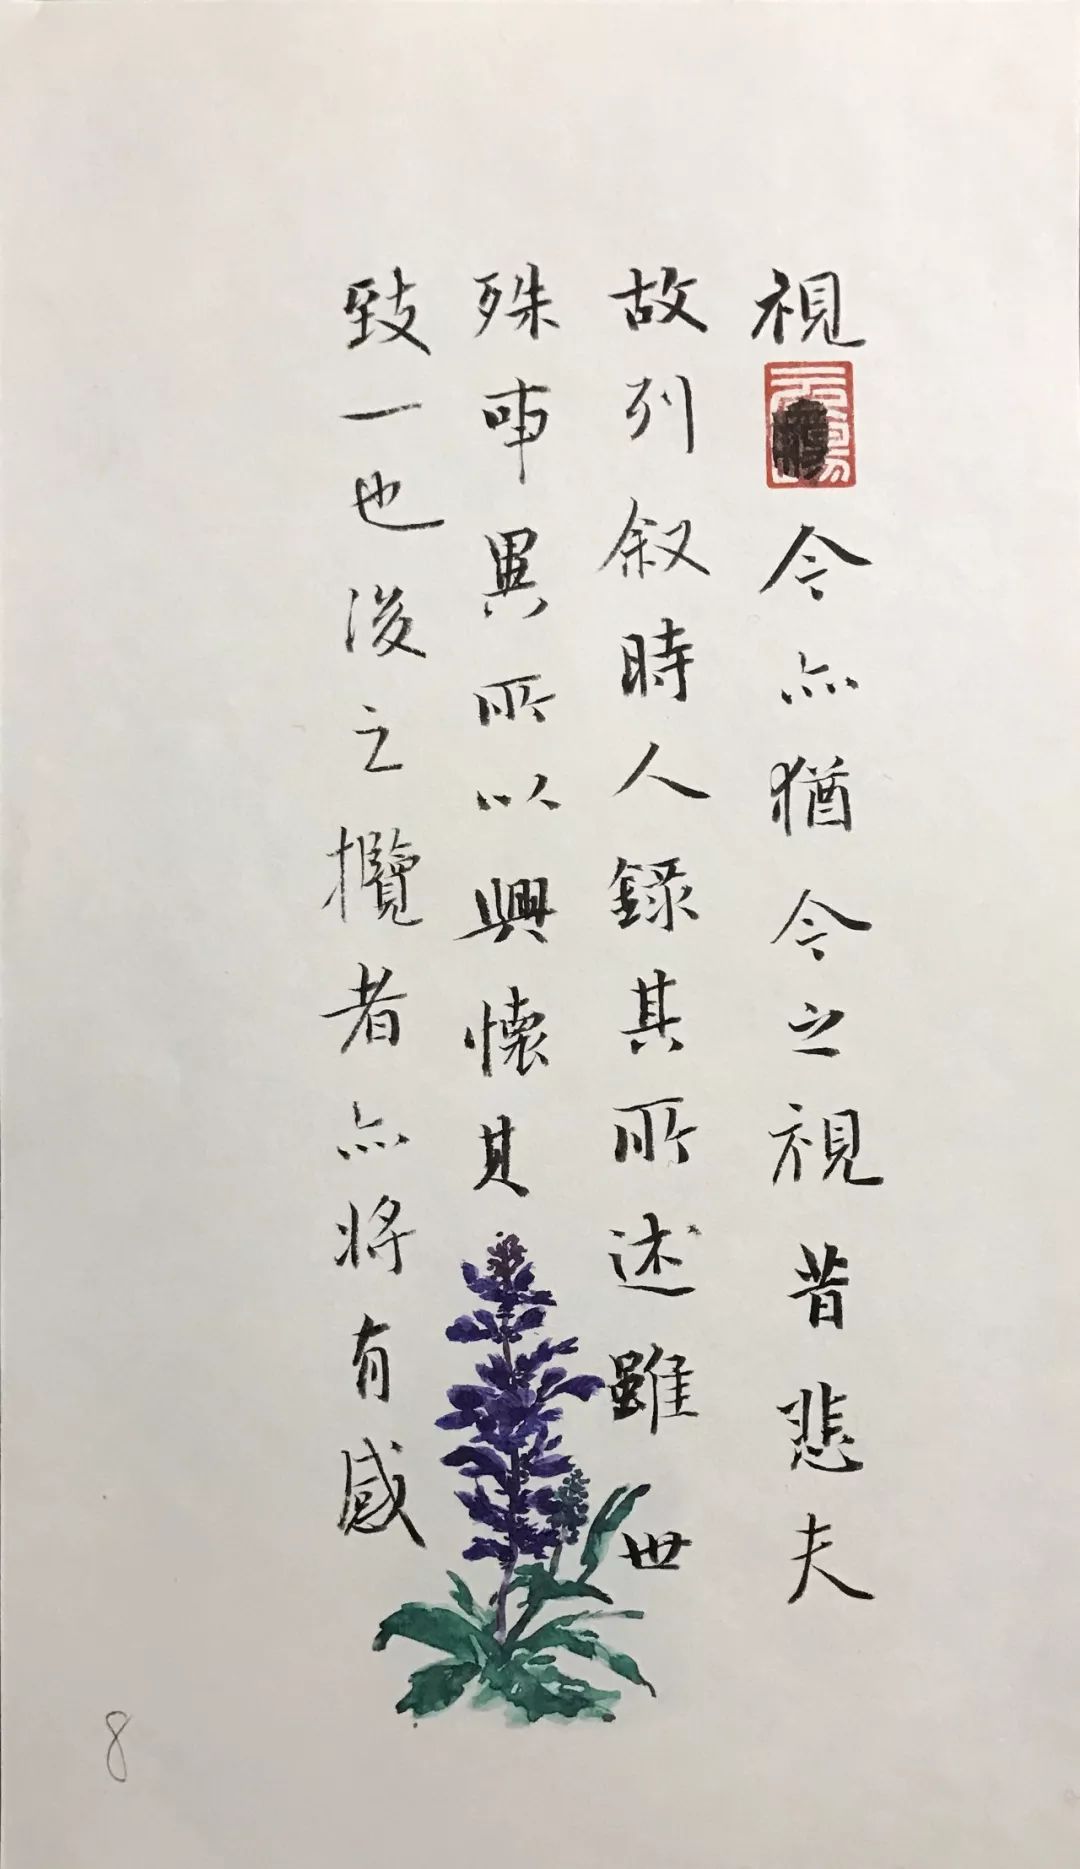 視今亦猶今之視昔悲夫
故列叙時人錄其所述雖世
殊事異所以興懷其
致一也後之攬者亦將有感
8